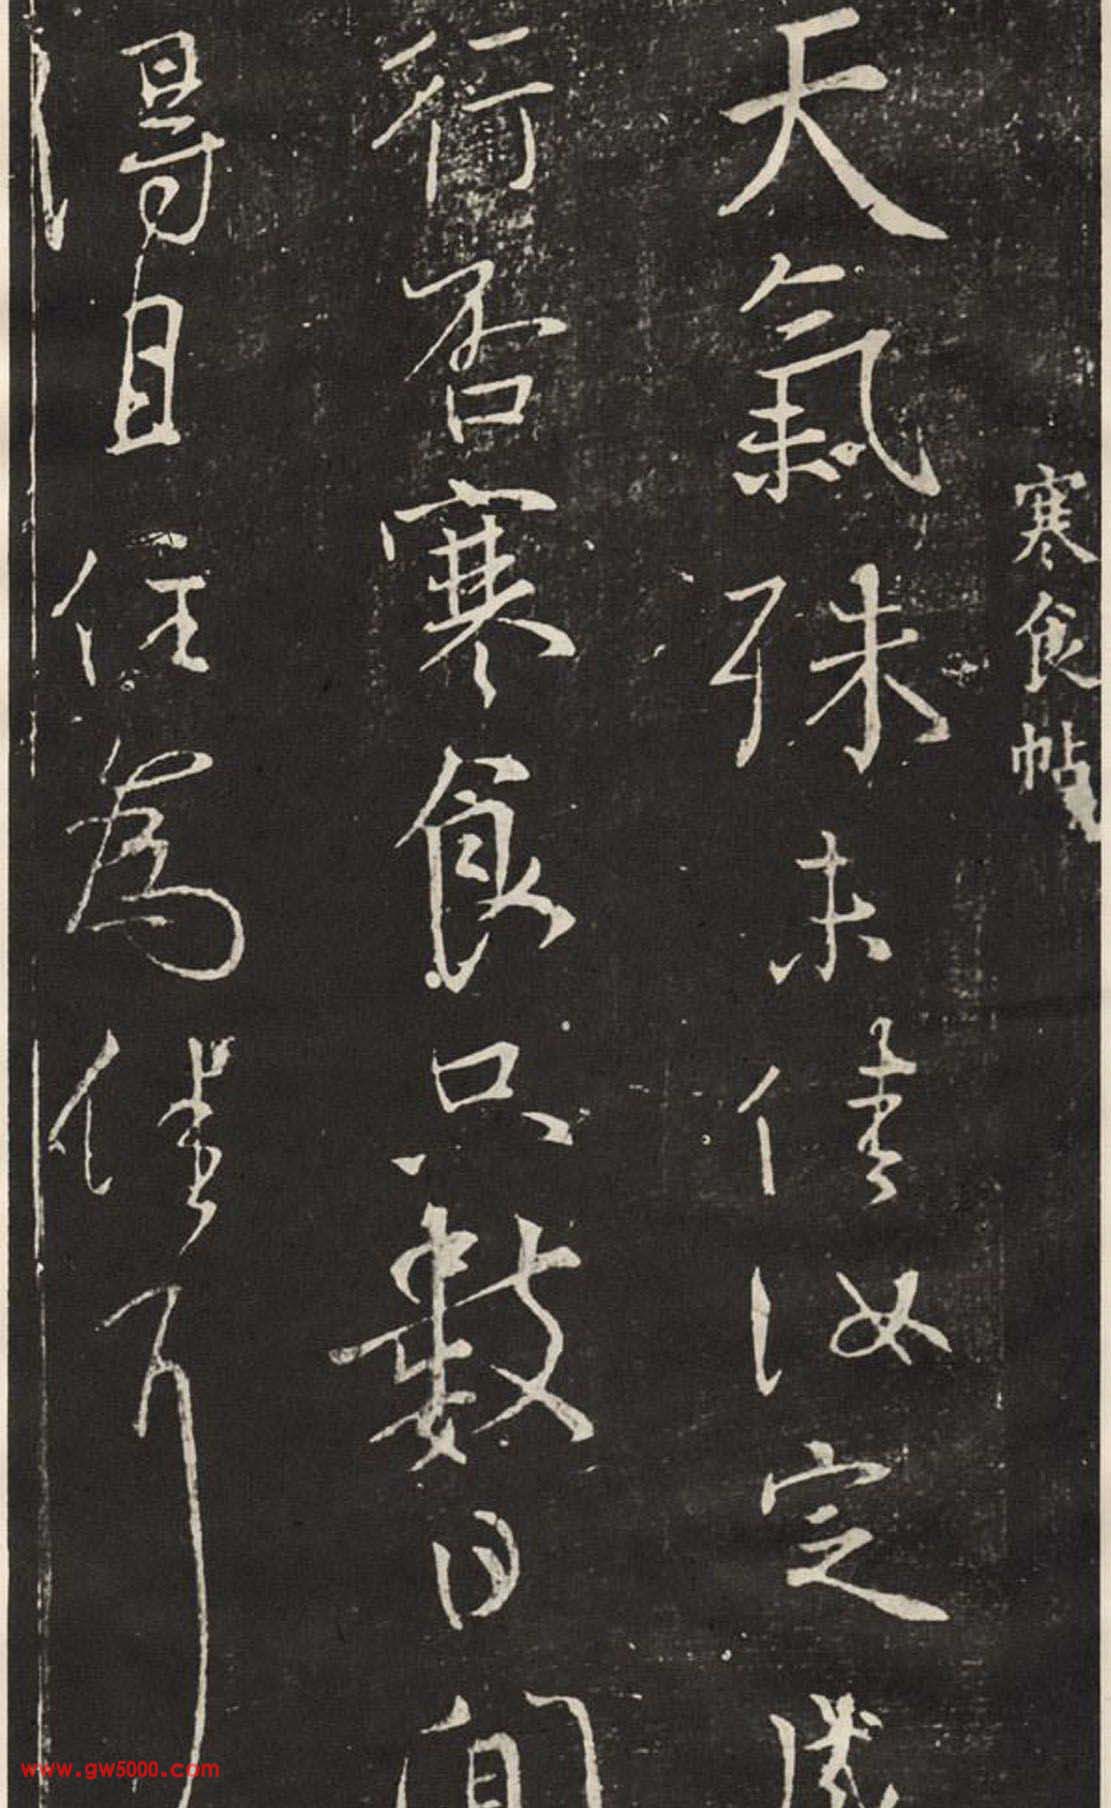 寒食帖
天氣殊未佳汝定成
行否寒食只數日間
得且住為佳耳
www.gw5000.com